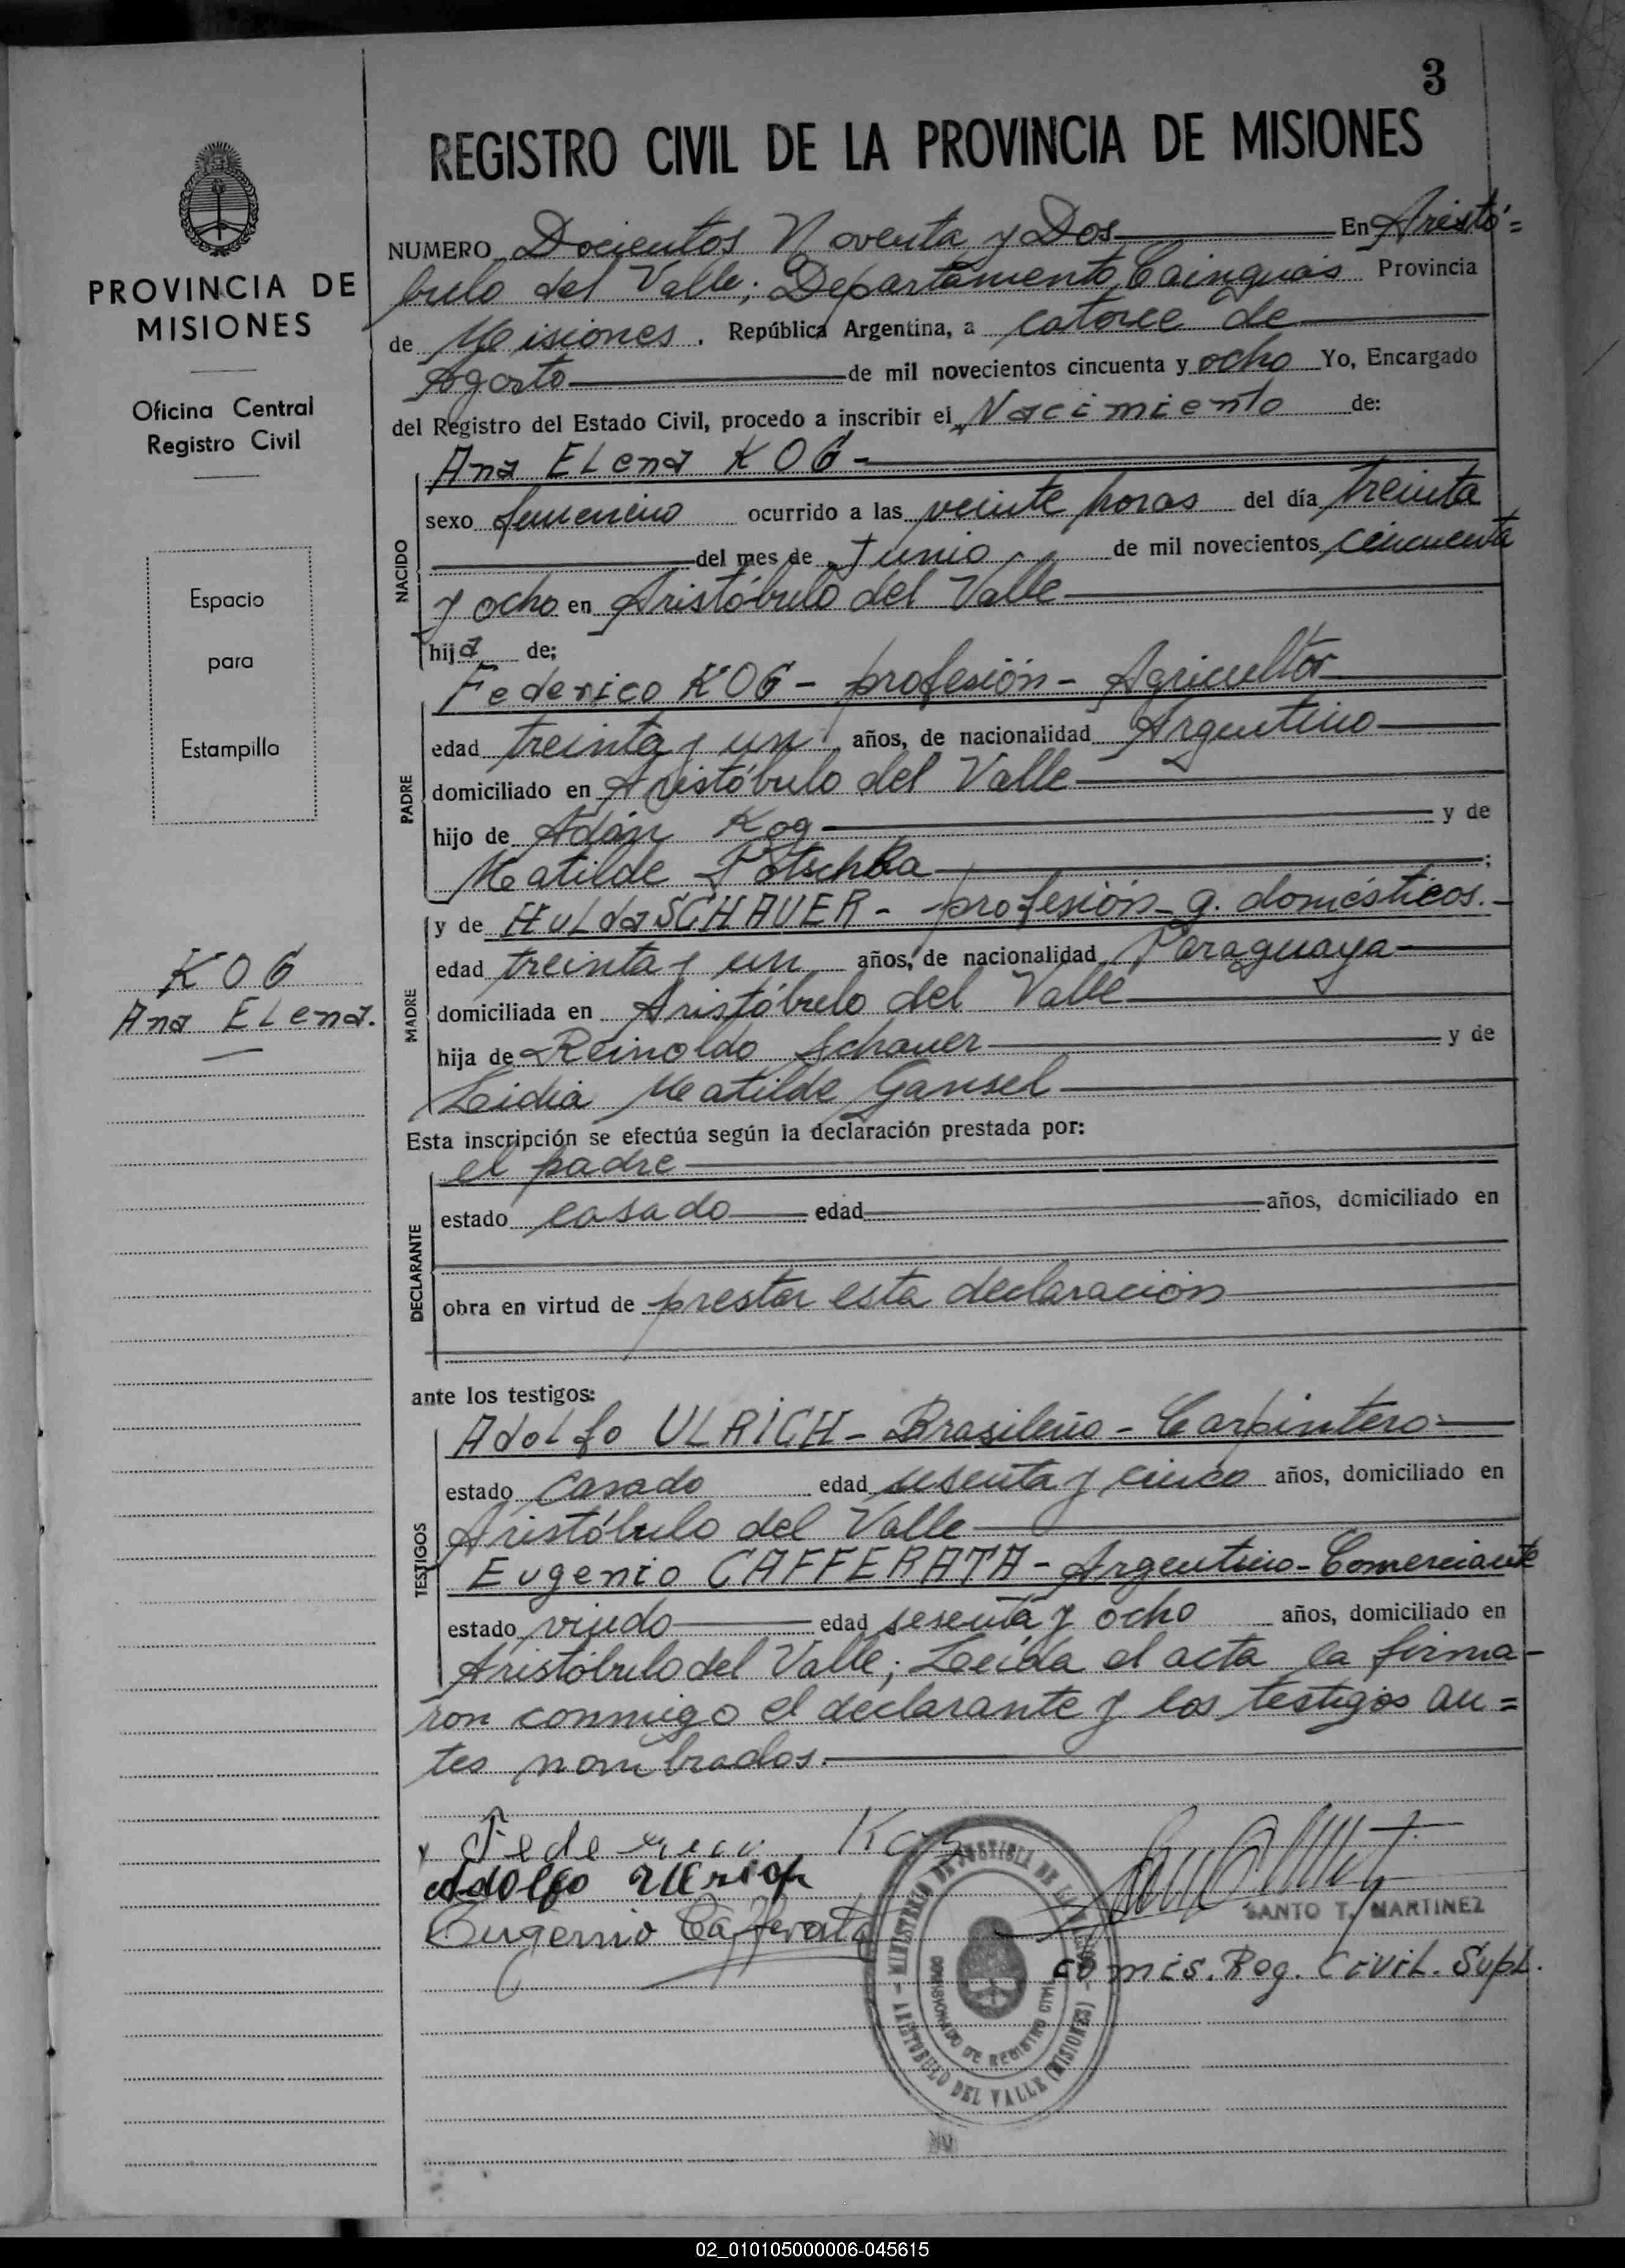 3
REGISTRO CIVIL DE LA PROVINCIA DE MISIONES
PROVINCIA DE
MISIONES
Oficina Central
Registro Civil
Espacio
para
Estampilla
KOG
Ana ELena.
NUMERO Docientos Noventa y Dos En Aristó=
bulo del Valle; Departamento Cainguás Provincia
de Misiones. República Argentina, a catorce de
Agosto de mil novecientos cincuenta y ocho Yo, Encargado
del Registro del Estado Civil, procedo a inscribir el Nacimiento de:
NACIDO
Ana ELena KOG-
sexo femenino ocurrido a las veinte horas del día treinta
del mes de Junio de mil novecientos cincuenta
y ocho en Aristóbulo del Valle
hija de:
PADRE
Federico KOG - profesión - Agricultor
edad treinta y un años, de nacionalidad Argentino
domiciliado en Aristóbulo del Valle
hijo de Adán Kog y de
Matilde Potschka ;
MADRE
y de HuLda SCHAUER - profesión - q. domésticos.
edad treinta y un años, de nacionalidad Paraguaya
domiciliada en Aristóbulo del Valle
hija de Reinoldo Schauer y de
Lidia Matilde Gansel
Esta inscripción se efectúa según la declaración prestada por:
DECLARANTE
el padre
estado casado edad años, domiciliado en
obra en virtud de prestar esta declaración
ante los testigos:
TESTIGOS
AdoLfo ULRICH - Brasileño - Carpintero
estado Casado edad sesenta y cinco años, domiciliado en
Aristóbulo del Valle
Eugenio CAFFERATA - Argentino - Comerciante
estado viudo edad sesenta y ocho años, domiciliado en
Aristóbulo del Valle; Leída el acta la firma-
ron conmigo el declarante y los testigos an=
tes nombrados.
Federico Kog
Adolfo Ulrich
Eugenio Cafferata
SANTO T. MARTINEZ
Comis. Reg. CiviL. SupL.
MINISTERIO DE JUSTICIA DE LA NACION
COMISIONADO DE REGISTRO CIVIL
ARISTOBULO DEL VALLE (MISIONES)
02_010105000006-045615